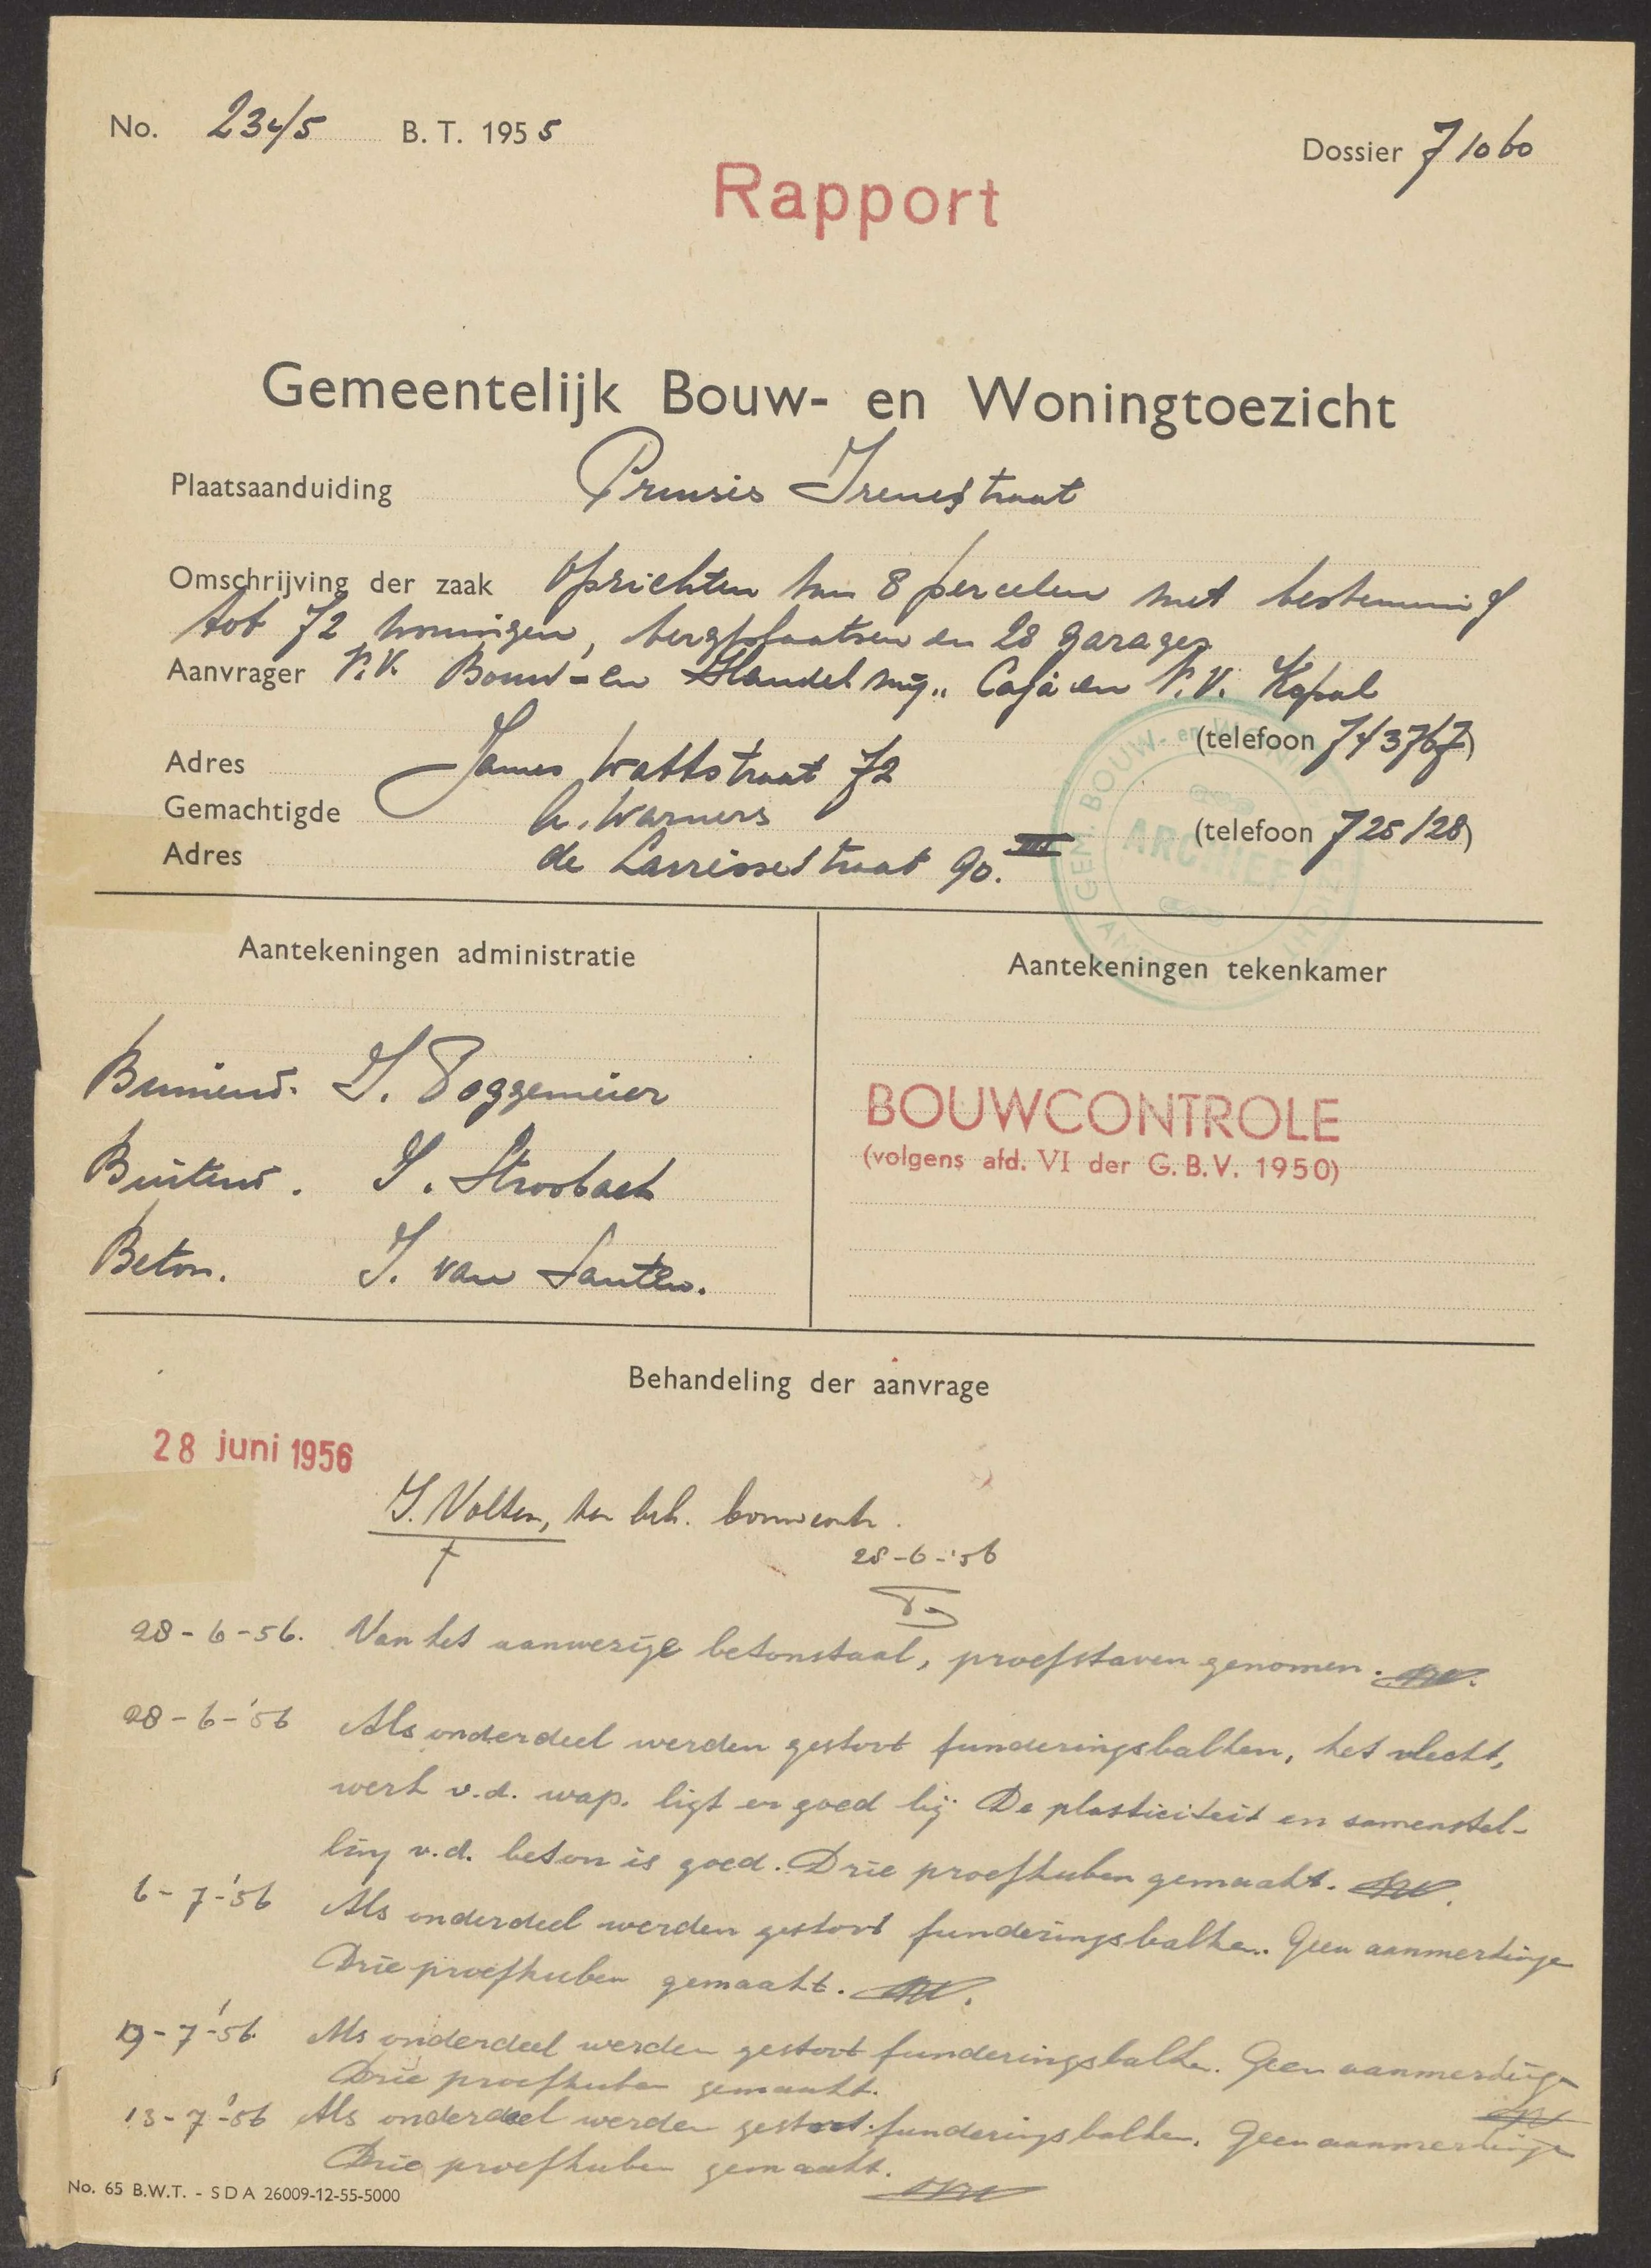 No. 234/5 B. T. 1955
Dossier 71060
Rapport
Gemeentelijk Bouw- en Woningtoezicht
Plaatsaanduiding Prinses Irenestraat
Omschrijving der zaak Oprichten van 8 percelen met bestemming
tot 72 woningen, bergplaatsen en 28 garages
Aanvrager N.V. Bouw- en Handel mij. „ Caja en N.V. Kapal
(telefoon 743767)
Adres James Wattstraat 72
Gemachtigde A. Warners
(telefoon 725128)
Adres de Lairessestraat 90. III
GEM. BOUW- en WONINGTOEZICHT
ARCHIEF
AMSTERDAM
Aantekeningen administratie
Aantekeningen tekenkamer
Binnend. I. Poggemeier
BOUWCONTROLE
(volgens afd. VI der G. B. V. 1950)
Buitend. I. Stroobach
Beton. I. van Santen.
Behandeling der aanvrage
28 juni 1956
I. Volten, ter beh. bouwcontr.
28-6-'56
28-6-56. Van het aanwezige betonstaal, proefstaven genomen.
28-6-'56 Als onderdeel werden gestort funderingsbalken, het vlecht,
werk v.d. wap. ligt er goed bij. De plasticiteit en samenstel-
ling v.d. beton is goed. Drie proefkuben gemaakt.
6-7-'56 Als onderdeel werden gestort funderingsbalken. Geen aanmerkingen
Drie proefkuben gemaakt.
Als onderdeel werden gestort funderingsbalken. Geen aanmerkingen
Drie proefkuben gemaakt.
13-7-'56 Als onderdeel werden gestort funderingsbalken. Geen aanmerkingen
Drie proefkuben gemaakt.
No. 65 B.W.T. - S D A 26009-12-55-5000